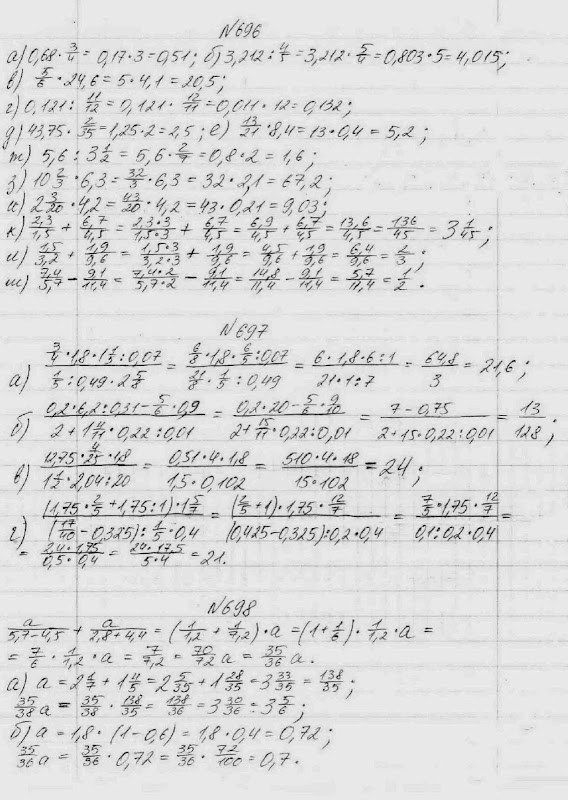 №696
а) 0,68 · 3/4 = 0,17 · 3 = 0,51; б) 3,212 : 4/5 = 3,212 · 5/4 = 0,803 · 5 = 4,015;
в) 5/6 · 24,6 = 5 · 4,1 = 20,5;
г) 0,121 : 11/12 = 0,121 · 12/11 = 0,011 · 12 = 0,132;
д) 43,75 · 2/35 = 1,25 · 2 = 2,5; е) 13/21 · 8,4 = 13 · 0,4 = 5,2;
ж) 5,6 : 3 1/2 = 5,6 · 2/7 = 0,8 · 2 = 1,6;
з) 10 2/3 · 6,3 = 32/3 · 6,3 = 32 · 2,1 = 67,2;
и) 2 3/20 · 4,2 = 43/20 · 4,2 = 43 · 0,21 = 9,03;
к) 2,3/1,5 + 6,7/4,5 = 2,3·3/1,5·3 + 6,7/4,5 = 6,9/4,5 + 6,7/4,5 = 13,6/4,5 = 136/45 = 3 1/45;
л) 1,5/3,2 + 1,9/9,6 = 1,5·3/3,2·3 + 1,9/9,6 = 4,5/9,6 + 1,9/9,6 = 6,4/9,6 = 2/3;
м) 7,4/5,7 - 9,1/11,4 = 7,4·2/5,7·2 - 9,1/11,4 = 14,8/11,4 - 9,1/11,4 = 5,7/11,4 = 1/2.
№697
а) (3/4 · 1,8 · 1 1/5 : 0,07)/(1/5 : 0,49 · 2 5/8) = (6/8 · 1,8 · 6/5 : 0,07)/(21/8 · 1/5 : 0,49) = (6 · 1,8 · 6 : 1)/(21 · 1 : 7) = 64,8/3 = 21,6;
б) (0,2 · 6,2 : 0,31 - 5/6 · 0,9)/(2 + 1 4/11 · 0,22 : 0,01) = (0,2 · 20 - 5/6 · 9/10)/(2 + 15/11 · 0,22 : 0,01) = (7 - 0,75)/(2 + 15 · 0,22 : 0,01) = 13/128;
в) (12,75 · 4/25 · 18)/(1 1/2 · 2,04 : 20) = (0,51 · 4 · 1,8)/(1,5 · 0,102) = (510 · 4 · 18)/(15 · 102) = 24;
г) ((1,75 · 2/5 + 1,75 : 1) · 1 5/7)/((17/40 - 0,325) : 1/5 · 0,4) = ((2/5 + 1) · 1,75 · 12/7)/((0,425 - 0,325) : 0,2 · 0,4) = (7/5 · 1,75 · 12/7)/(0,1 : 0,2 · 0,4) =
= (2,4 · 1,75)/(0,5 · 0,4) = (24 · 17,5)/(5 · 4) = 21.
№698
a/(5,7-4,5) + a/(2,8+4,4) = (1/1,2 + 1/7,2) · a = (1 + 1/6) · 1/1,2 · a =
= 7/6 · 1/1,2 · a = 7/7,2 = 70/72 a = 35/36 a.
а) a = 2 1/7 + 1 4/5 = 2 5/35 + 1 28/35 = 3 33/35 = 138/35;
35/38 a = 35/38 · 138/35 = 138/36 = 3 30/36 = 3 5/6;
б) a = 1,8 · (1-0,6) = 1,8 · 0,4 = 0,72;
35/36 a = 35/36 · 0,72 = 35/36 · 72/100 = 0,7.